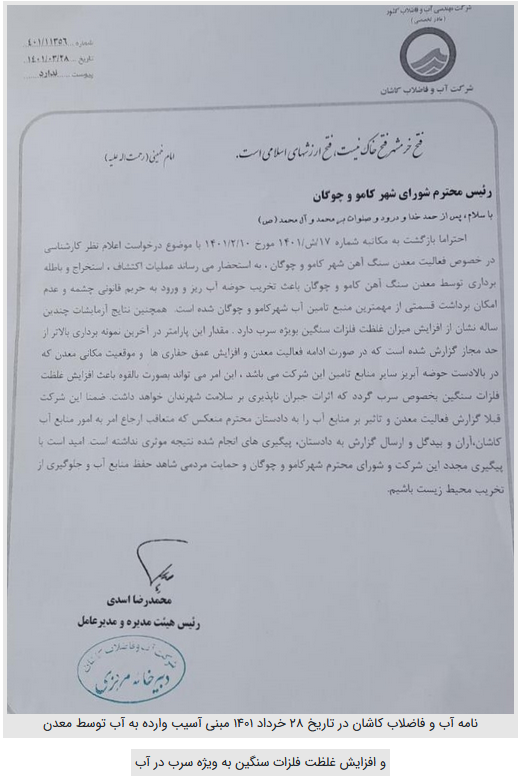 شرکت مهندسی آب و فاضلاب کشور
(مادر تخصصی)
شرکت آب و فاضلاب کاشان
شماره ۴۰۱/۱۱۳۵۶
تاریخ ۱۴۰۱/۰۳/۲۸
پیوست ندارد
فتح خرمشهر فتح خاک نیست، فتح ارزشهای اسلامی است. امام خمینی (رحمت اله علیه)
رئیس محترم شورای شهر کامو و چوگان
با سلام، پس از حمد خدا و درود و صلوات بر محمد و آل محمد (ص)
احتراما بازگشت به مکاتبه شماره ۱۷/ش/۱۴۰۱ مورخ ۱۴۰۱/۲/۱۰ با موضوع درخواست اعلام نظر کارشناسی
در خصوص فعالیت معدن سنگ آهن شهر کامو و چوگان ، به استحضار می رساند عملیات اکتشاف ، استخراج و باطله
برداری توسط معدن سنگ آهن کامو و چوگان باعث تخریب حوضه آب ریز و ورود به حریم قانونی چشمه و عدم
امکان برداشت قسمتی از مهمترین منبع تامین آب شهرکامو و چوگان شده است. همچنین نتایج آزمایشات چندین
ساله نشان از افزایش میزان غلظت فلزات سنگین بویژه سرب دارد . مقدار این پارامتر در آخرین نمونه برداری بالاتر از
حد مجاز گزارش شده است که در صورت ادامه فعالیت معدن و افزایش عمق حفاری ها و موقعیت مکانی معدن که
در بالادست حوضه آبریز سایر منابع تامین این شرکت می باشد ، این امر می تواند بصورت بالقوه باعث افزایش غلظت
فلزات سنگین بخصوص سرب گردد که اثرات جبران ناپذیری بر سلامت شهرندان خواهد داشت. ضمنا این شرکت
قبلا گزارش فعالیت معدن و تاثیر بر منابع آب را به دادستان محترم منعکس که متعاقب ارجاع امر به امور منابع آب
کاشان،آران و بیدگل و ارسال گزارش به دادستان، پیگیری های انجام شده نتیجه موثری نداشته است. امید است با
پیگیری مجدد این شرکت و شورای محترم شهرکامو و چوگان و حمایت مردمی شاهد حفظ منابع آب و جلوگیری از
تخریب محیط زیست باشیم.
محمدرضا اسدی
رئیس هیئت مدیره و مدیرعامل
شرکت آب و فاضلاب کاشان
دبیرخانه مرکزی
نامه آب و فاضلاب کاشان در تاریخ ۲۸ خرداد ۱۴۰۱ مبنی آسیب وارده به آب توسط معدن
و افزایش غلظت فلزات سنگین به ویژه سرب در آب